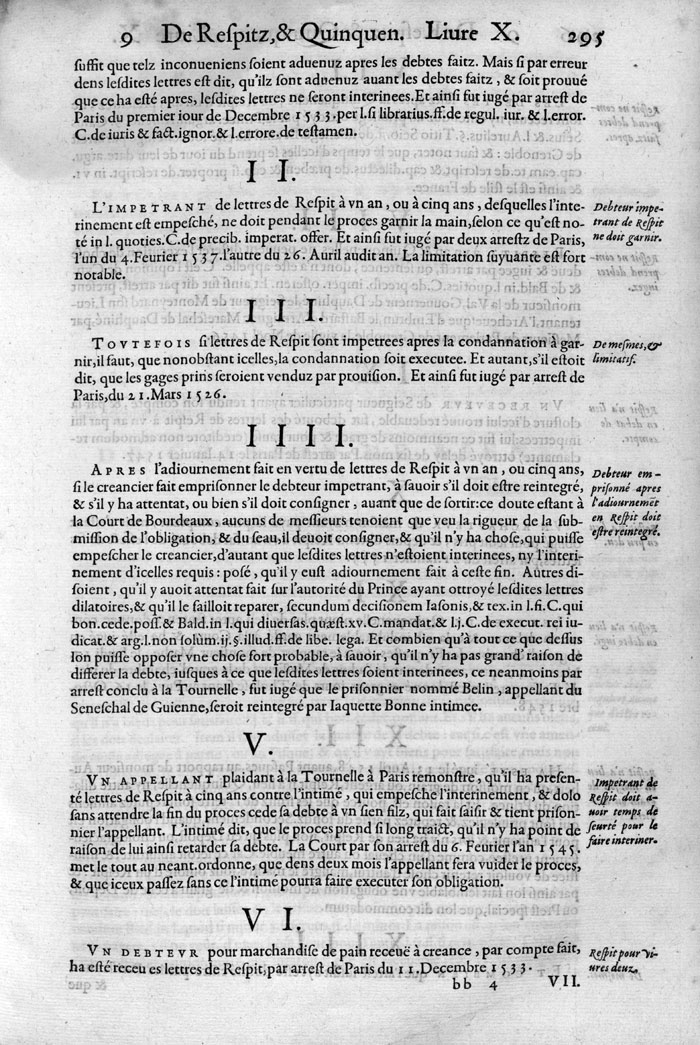 9 De Reſpitz, & Quinquen. Liure X. 295
ſuffit que telz inconueniens ſoient aduenuz apres les debtes faitz. Mais ſi par erreur
dens leſdites lettres eſt dit, qu'ilz ſont aduenuz auant les debtes faitz, & ſoit prouué
que ce ha eſté apres, leſdites lettres ne ſeront interinees. Et ainſi fut iugé par arreſt de
Paris du premier iour de Decembre 1533. per l. ſi librarius. ff. de regul. iur. & l. error.
C. de iuris & fact. ignor. & l. errore. de teſtamen.
II.
L'IMPETRANT de lettres de Reſpit à vn an, ou à cinq ans, deſquelles l'inte-
rinement eſt empeſché, ne doit pendant le proces garnir la main, ſelon ce qu'eſt no-
té in l. quoties. C. de precib. imperat. offer. Et ainſi fut iugé par deux arreſtz de Paris,
l'un du 4. Feurier 1537. l'autre du 26. Auril audit an. La limitation ſuyuante eſt fort
notable.
Debteur impe-
trant de Reſpit
ne doit garnir.
III.
TOVTEFOIS ſi lettres de Reſpit ſont impetrees apres la condannation à gar-
nir, il faut, que nonobſtant icelles, la condannation ſoit executee. Et autant, s'il eſtoit
dit, que les gages prins ſeroient venduz par prouiſion. Et ainſi fut iugé par arreſt de
Paris, du 21. Mars 1526.
De meſmes, &
limitatif.
IIII.
APRES l'adiournement fait en vertu de lettres de Reſpit à vn an, ou cinq ans,
ſi le creancier fait empriſonner le debteur impetrant, à ſauoir s'il doit eſtre reintegré,
& s'il y ha attentat, ou bien s'il doit conſigner, auant que de ſortir: ce doute eſtant à
la Court de Bourdeaux, aucuns de meſſieurs tenoient que veu la rigueur de la ſub-
miſſion de l'obligation, & du ſeau, il deuoit conſigner, & qu'il n'y ha choſe, qui puiſſe
empeſcher le creancier, d'autant que leſdites lettres n'eſtoient interinees, ny l'interi-
nement d'icelles requis: poſé, qu'il y euſt adiournement fait à ceſte fin. Autres di-
ſoient, qu'il y auoit attentat fait ſur l'autorité du Prince ayant ottroyé leſdites lettres
dilatoires, & qu'il le failloit reparer, ſecundum deciſionem Iaſonis, & tex. in l. fi. C. qui
bon. cede. poſſ. & Bald. in l. qui diuerſas. quæſt. xv. C. mandat. & l. j. C. de execut. rei iu-
dicat. & arg. l. non ſolùm. ij. §. illud. ff. de libe. lega. Et combien qu'à tout ce que deſſus
lon puiſſe oppoſer vne choſe fort probable, à ſauoir, qu'il n'y ha pas grand' raiſon de
differer la debte, iuſques à ce que leſdites lettres ſoient interinees, ce neanmoins par
arreſt conclu à la Tournelle, fut iugé que le priſonnier nommé Belin, appellant du
Seneſchal de Guienne, ſeroit reintegré par Iaquette Bonne intimee.
Debteur em-
priſonné apres
l'adiournemẽt
en Reſpit doit
eſtre reintegré.
V.
VN APPELLANT plaidant à la Tournelle à Paris remonſtre, qu'il ha preſen-
té lettres de Reſpit à cinq ans contre l'intimé, qui empeſche l'interinement, & dolo
ſans attendre la fin du proces cede ſa debte à vn ſien filz, qui fait ſaiſir & tient priſon-
nier l'appellant. L'intimé dit, que le proces prend ſi long traict, qu'il n'y ha point de
raiſon de lui ainſi retarder ſa debte. La Court par ſon arreſt du 6. Feurier l'an 1545.
met le tout au neant. ordonne, que dens deux mois l'appellant fera vuider le proces,
& que iceux paſſez ſans ce l'intimé pourra faire executer ſon obligation.
Impetrant de
Reſpit doit a-
uoir temps de
ſeurté pour le
faire interiner.
VI.
VN DEBTEVR pour marchandiſe de pain receuë à creance, par compte fait,
ha eſté receu es lettres de Reſpit, par arreſt de Paris du 11. Decembre 1533.
Reſpit pour vi-
ures deuz.
bb 4 VII.